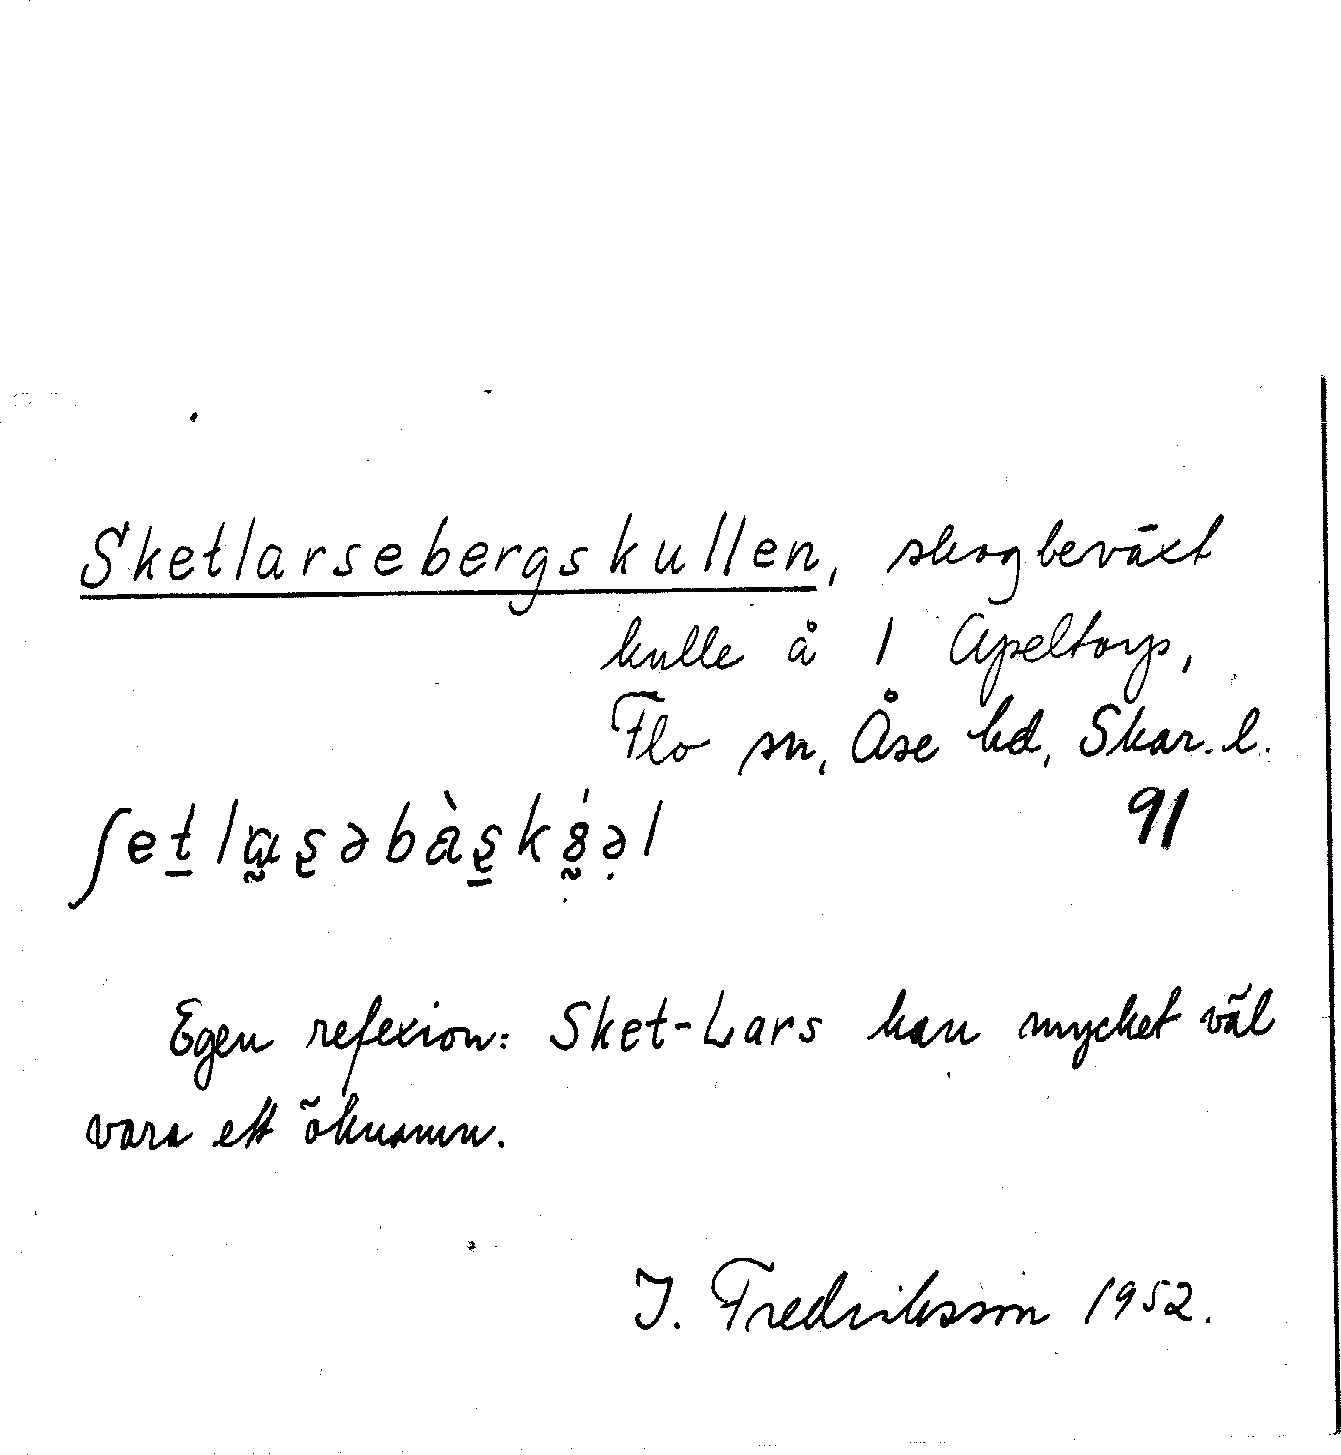 Sketlarsebergskullen, skogbeväxt
kulle å 1 Apeltorp,
Flo sn, Åse hd, Skar. l.
91
Egen refexion: Sket-Lars kan mycket väl
vara ett öknamn.
J. Fredriksson 1952.